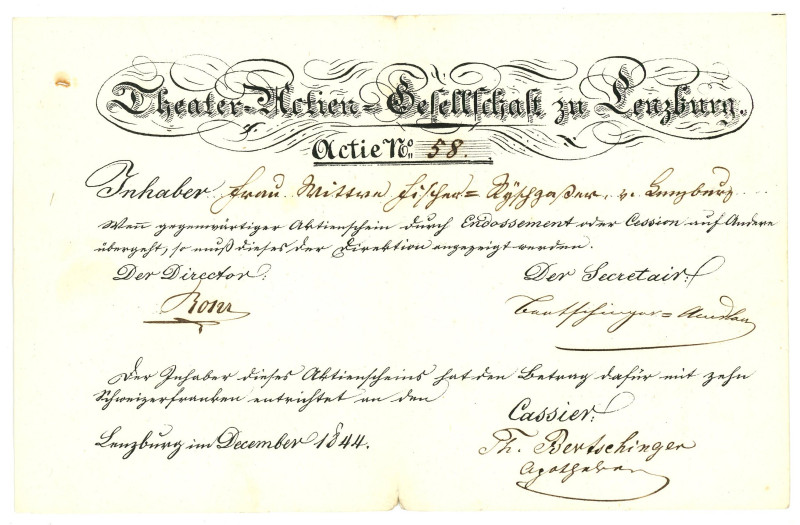 Theater-Actien-Gesellschaft zu Lenzburg.
Actie No. 58.
Inhaber Frau Wittwe Fischer= v. Lenzburg
Wenn gegenwärtiger Aktienschein durch Endossement oder Cession auf Andere
übergeht, so muß dieses der Direktion angezeigt werden.
Der Director: Der Secretair:
Rohr Bertschinger=
Der Inhaber dieses Aktienscheins hat den Betrag dafür mit zehn
Schweizerfranken entrichtet an den
Cassier:
Lenzburg im December 1844.
Th. Bertschinger
Apotheker